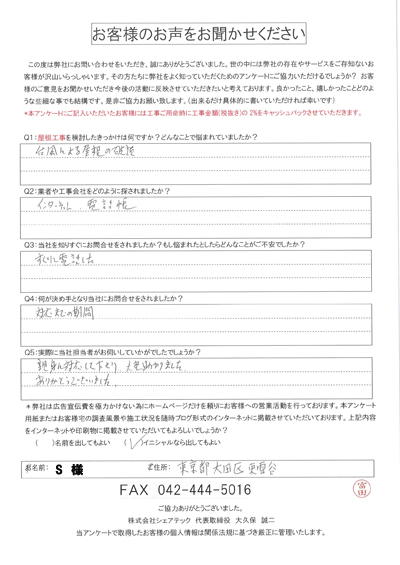 お客様のお声をお聞かせください
この度は弊社にお問い合わせをいただき、誠にありがとうございました。世の中には弊社の存在やサービスをご存知ないお
客様が沢山いらっしゃいます。その方たちに弊社をよく知っていただくためのアンケートにご協力いただけるでしょうか？ お客
様のご意見をお聞かせいただき今後の活動に反映させていただきたいと考えております。良かったこと、嬉しかったことどのよ
うな些細な事でも結構です。是非ご協力お願い致します。（出来るだけ具体的に書いていただければ幸いです）
*本アンケートにご記入いただいたお客様には工事ご用命時に工事金額(税抜き)の 2%をキャッシュバックさせていただきます。
Q1:屋根工事を検討したきっかけは何ですか？どんなことで悩まれていましたか？
台風による屋根の破損
Q2:業者や工事会社をどのように探されましたか？
インターネット、電話帳
Q3:当社を知りすぐにお問合せをされましたか？もし悩まれたとしたらどんなことがご不安でしたか？
すぐに電話した
Q4:何が決め手となり当社にお問合せをされましたか？
対応までの期間
Q5:実際に当社担当者がお伺いしていかがでしたでしょうか？
親身に対応して下さり、大変助かりました
ありがとうございました。
*弊社は広告宣伝費を極力かけない為にホームページだけを頼りにお客様への営業活動を行っております。本アンケート
用紙またはお客様宅の調査風景や施工状況を随時ブログ形式のインターネットに掲載させていただいております。上記内容
をインターネットや印刷物に掲載させていただいてもよろしいでしょうか？
( )名前を出してもよい (✓)イニシャルなら出してもよい
お名前: S 様 ご住所: 東京都大田区東雪谷
FAX 042-444-5016
富田
ご協力ありがとうございました。
株式会社シェアテック 代表取締役 大久保 誠二
当アンケートで取得したお客様の個人情報は関係法規に基づき厳正に管理いたします。